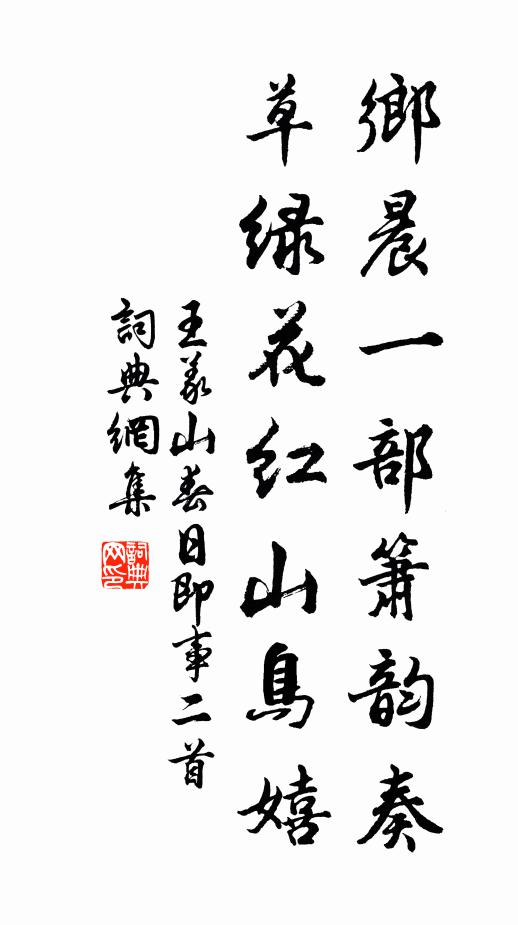 鄉晨一部簫韵奏
草緑花红山鳥嬉
王義山春日即事二首
詞典網集
詞典網印